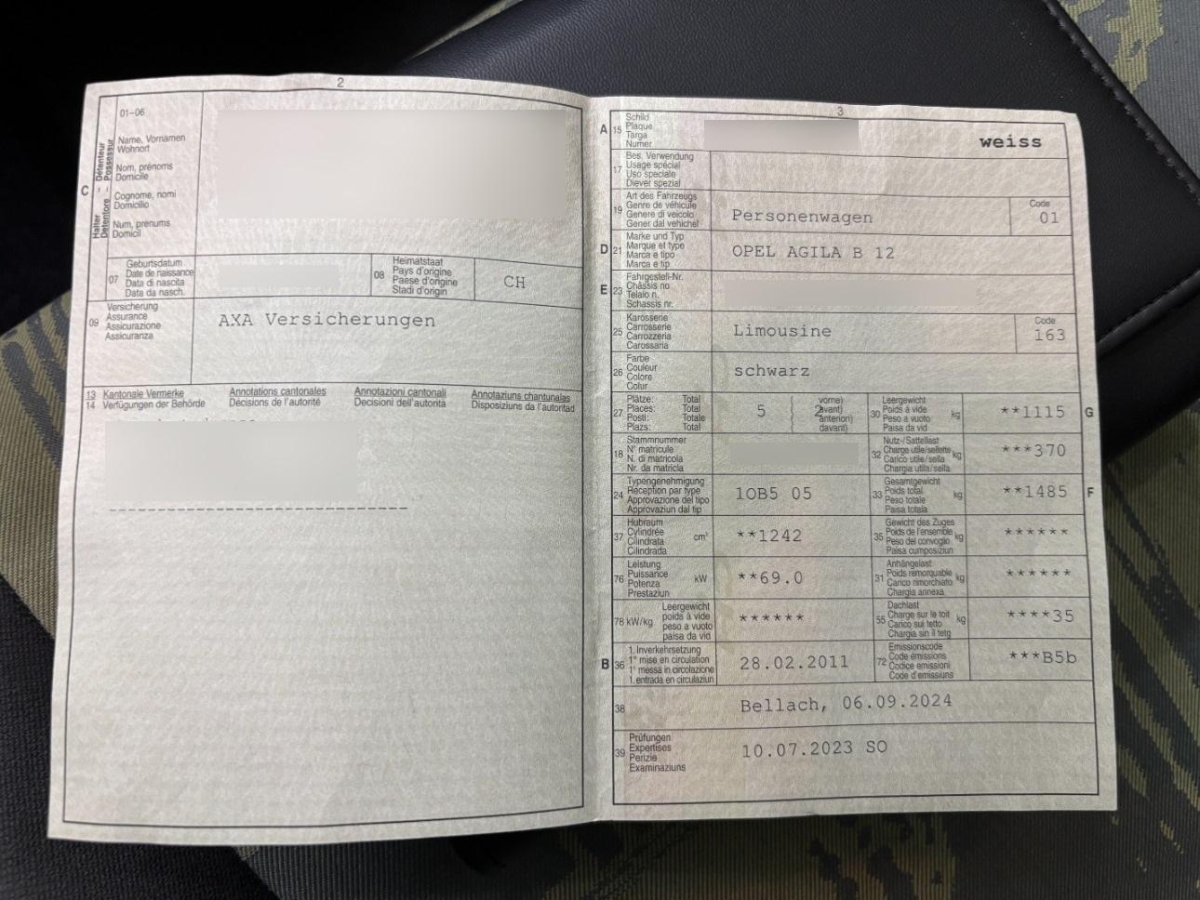 2
01–06
Halter Détenteur
Detentore Possessur
C
Name, Vornamen
Wohnort
Nom, prénoms
Domicile
Cognome, nomi
Domicilio
Num, prenums
Domicil
07
Geburtsdatum
Date de naissance
Data di nascita
Data da nasch.
08
Heimatstaat
Pays d'origine
Paese d'origine
Stadi d'origin
CH
09
Versicherung
Assurance
Assicurazione
Assicuranza
AXA Versicherungen
13 Kantonale Vermerke Annotations cantonales Annotazioni cantonali Annotaziuns chantunalas
14 Verfügungen der Behörde Décisions de l'autorité Decisioni dell'autorità Disposiziuns da l'autoritad
3
A 15
Schild
Plaque
Targa
Numer
weiss
17
Bes. Verwendung
Usage spécial
Uso speciale
Diever spezial
19
Art des Fahrzeugs
Genre de véhicule
Genere di veicolo
Gener dal vehichel
Personenwagen
Code
01
D 21
Marke und Typ
Marque et type
Marca e tipo
Marca e tip
OPEL AGILA B 12
E 23
Fahrgestell-Nr.
Châssis no
Telaio n.
Schassis nr.
25
Karosserie
Carrosserie
Carrozzeria
Carossaria
Limousine
Code
163
26
Farbe
Couleur
Colore
Colur
schwarz
27
Plätze: Total
Places: Total
Posti: Totale
Plazs: Total
5
vorne)
avant)
anteriori)
davant)
2
30
Leergewicht
Poids à vide
Peso a vuoto
Paisa da vid
kg
**1115
G
18
Stammnummer
N° matricule
N. di matricola
Nr. da matricla
32
Nutz-/Sattellast
Charge utile/sellette
Carico utile/sella
Chargia utila/sella
kg
***370
24
Typengenehmigung
Réception par type
Approvazione del tipo
Approvaziun dal tip
1OB5 05
33
Gesamtgewicht
Poids total
Peso totale
Paisa totala
kg
**1485
F
37
Hubraum
Cylindrée
Cilindrata
Cilindrada
cm³
**1242
35
Gewicht des Zuges
Poids de l'ensemble
Peso del convoglio
Paisa cumposiziun
kg
******
76
Leistung
Puissance
Potenza
Prestaziun
kW
**69.0
31
Anhängelast
Poids remorquable
Carico rimorchiato
Chargia annexa
kg
******
78 kW/kg
Leergewicht
poids à vide
peso a vuoto
paisa da vid
******
55
Dachlast
Charge sur le toit
Carico sul tetto
Chargia sin il tetg
kg
****35
B 36
1. Inverkehrsetzung
1re mise en circulation
1a messa in circolazione
1. entrada en circulaziun
28.02.2011
72
Emissionscode
Code émissions
Codice emissioni
Code d'emissiuns
***B5b
38
Bellach, 06.09.2024
39
Prüfungen
Expertises
Perizie
Examinaziuns
10.07.2023 SO